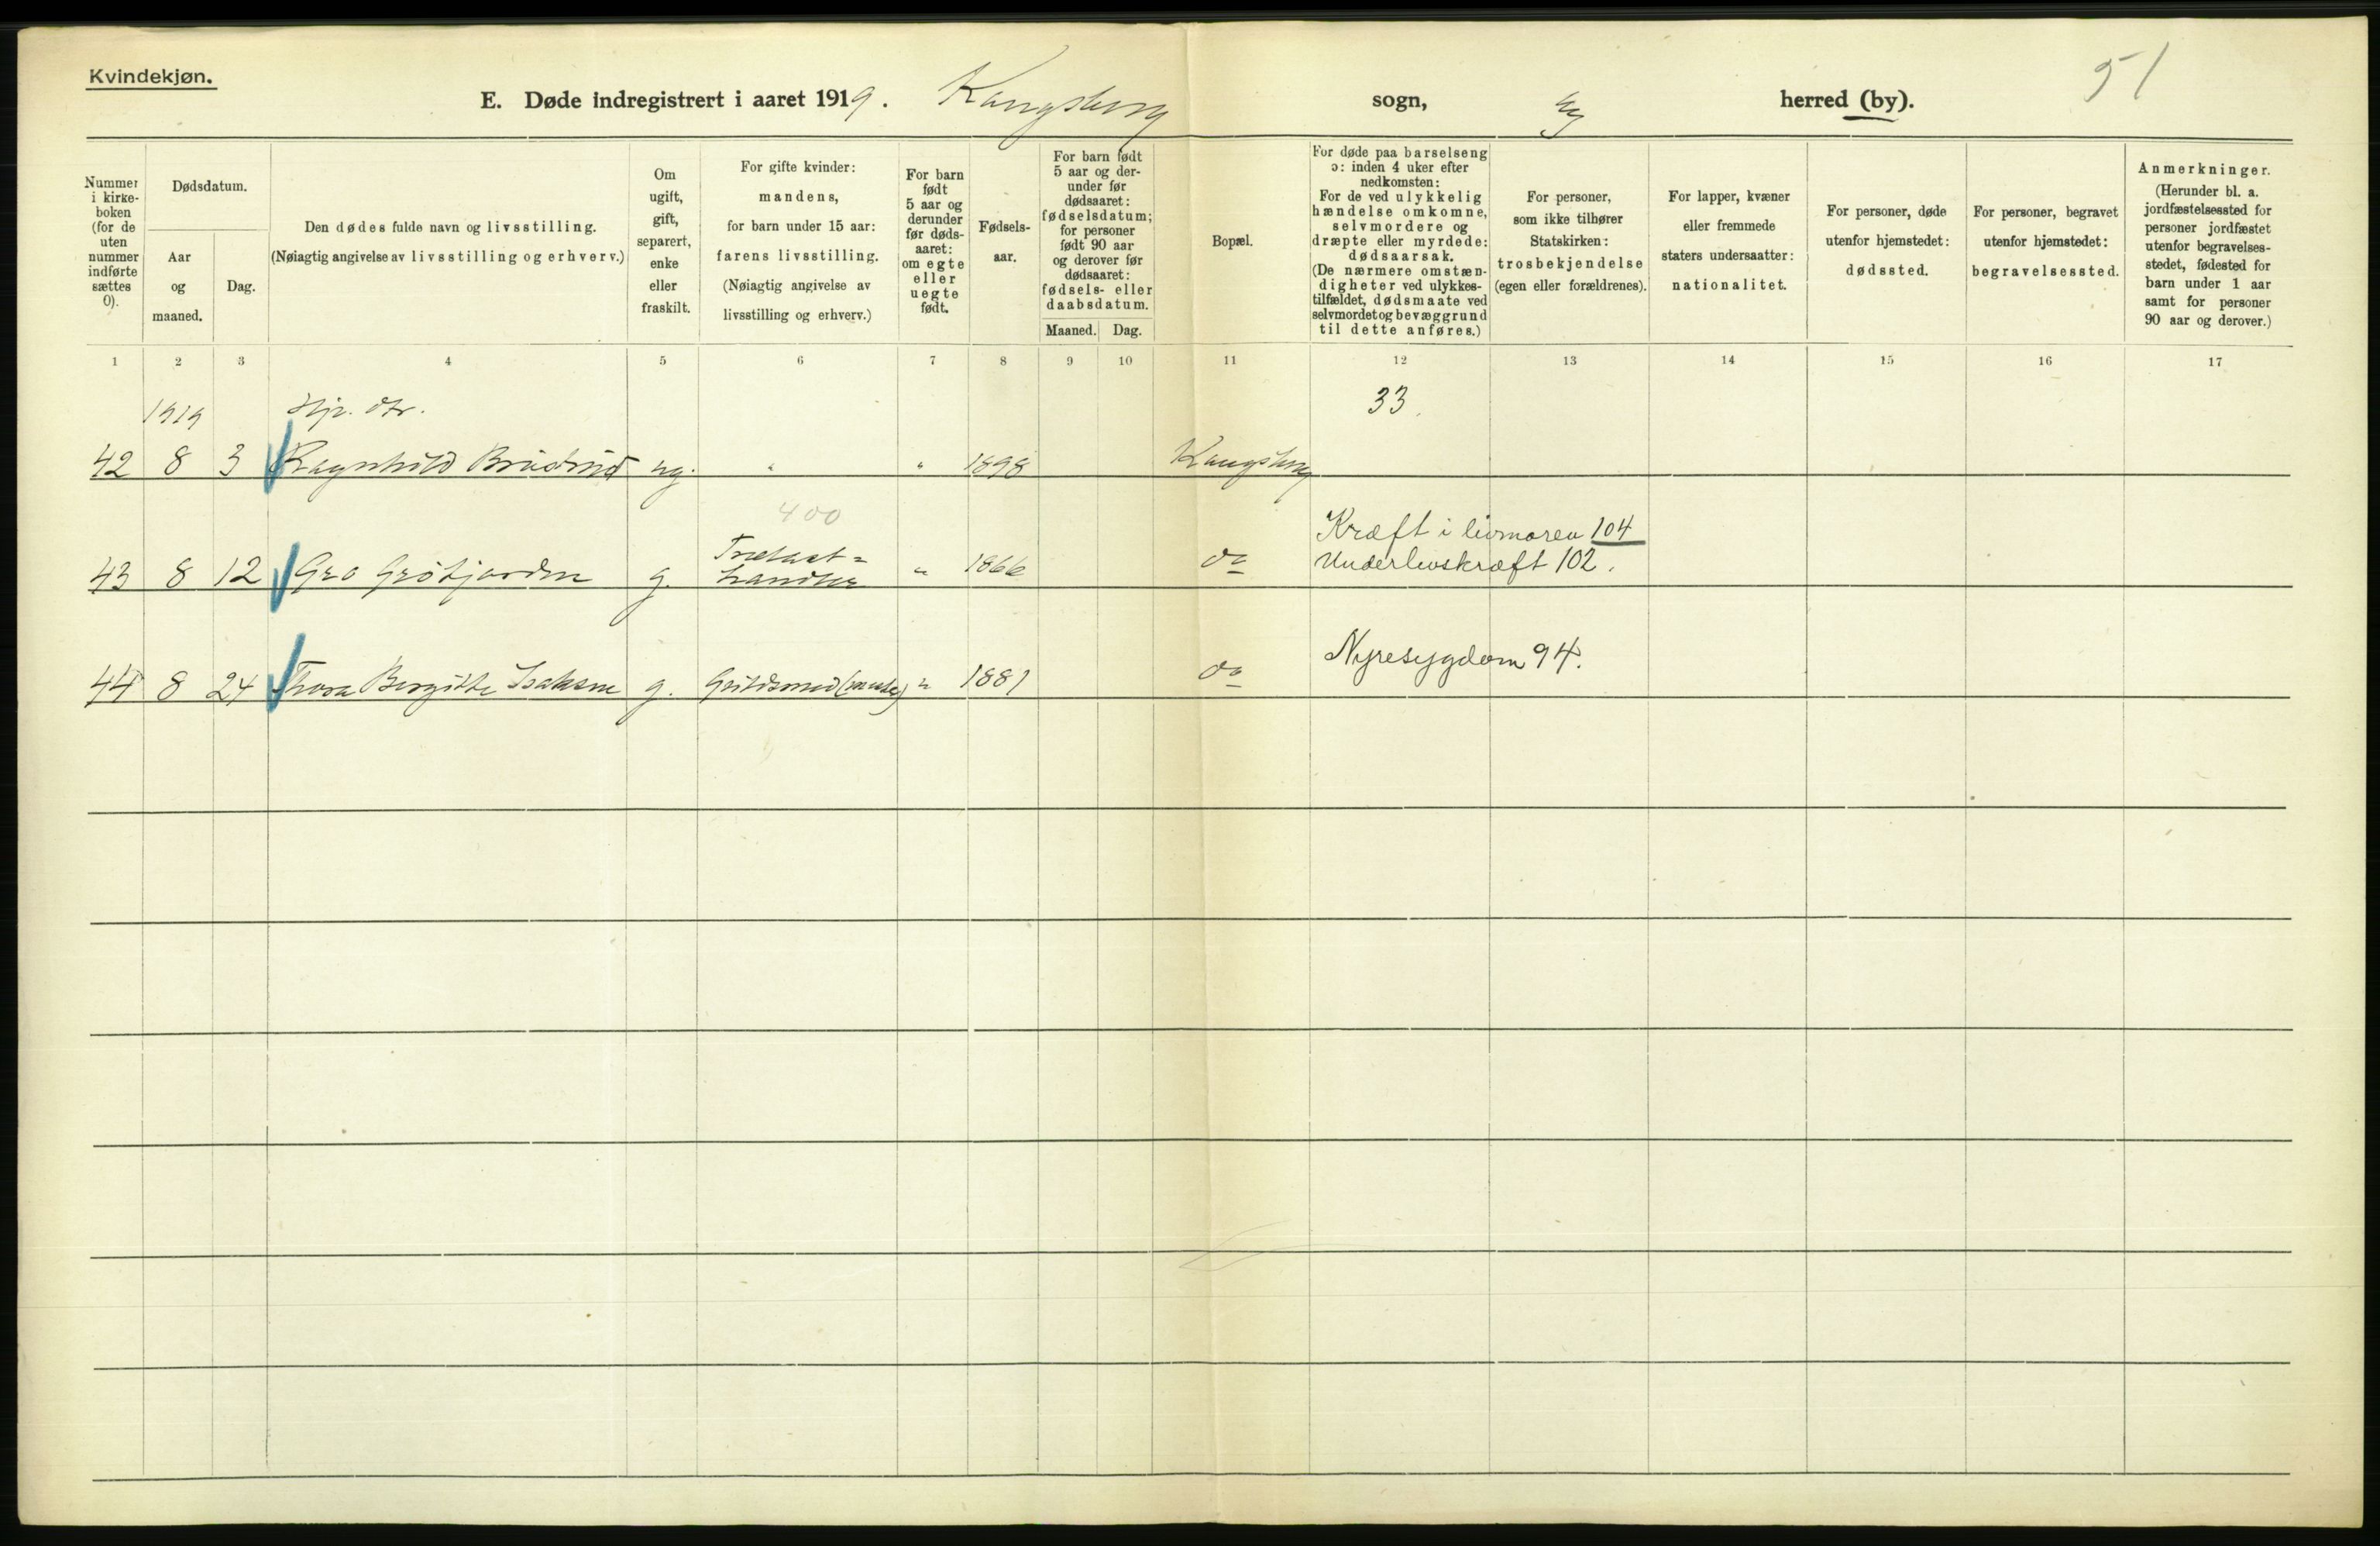 Kvindekjøn.
51
E. Døde indregistrert i aaret 1919. Kongsberg sogn, by herred (by).
Nummer i kirkeboken (for de uten nummer indførte sættes 0).
Dødsdatum.
Aar og maaned.
Dag.
Den dødes fulde navn og livsstilling.
(Nøiagtig angivelse av livsstilling og erhverv.)
Om ugift, gift, separert, enke eller fraskilt.
For gifte kvinder: mandens, for barn under 15 aar: farens livsstilling. (Nøiagtig angivelse av livsstilling og erhverv.)
For barn født 5 aar og derunder før dødsaaret: om egte eller uegte født.
Fødselsaar.
For barn født 5 aar og derunder før dødsaaret: fødselsdatum; for personer født 90 aar og derover før dødsaaret: fødsels- eller daabsdatum.
Maaned. Dag.
Bopæl.
For døde paa barselseng ɔ: inden 4 uker efter nedkomsten: For de ved ulykkelig hændelse omkomne, selvmordere og dræpte eller myrdede: dødsaarsak. (De nærmere omstændigheter ved ulykkestilfældet, dødsmaate ved selvmordet og bevæggrund til dette anføres.)
For personer, som ikke tilhører Statskirken: trosbekjendelse (egen eller forældrenes).
For lapper, kvæner eller fremmede staters undersaatter: nationalitet.
For personer, døde utenfor hjemstedet: dødssted.
For personer, begravet utenfor hjemstedet: begravelsessted.
Anmerkninger. (Herunder bl. a. jordfæstelsessted for personer jordfæstet utenfor begravelsesstedet, fødested for barn under 1 aar samt for personer 90 aar og derover.)
1 2 3 4 5 6 7 8 9 10 11 12 13 14 15 16 17
1919 Hjp. dtr. 33
42 8 3 Ragnhild ug. " " 1898 Kongsberg
400
Kræft i livmoren 104
Trælast-
43 8 12 Gro g. handler " 1866 do Underlivskræft 102.
Nyresygdom 94.
44 8 24 Thora Bergitte Isaksen g. Guldsmed " 1881 do